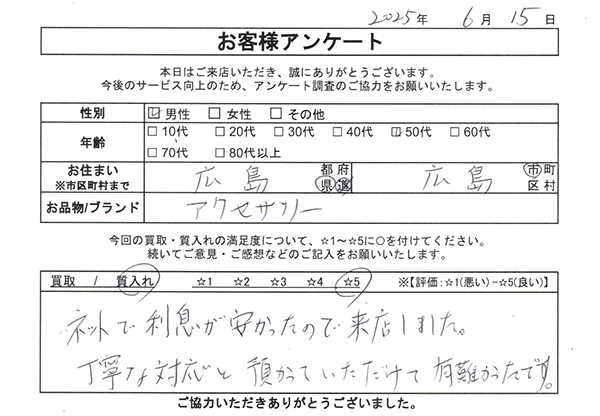 2025年 6月 15日
お客様アンケート
本日はご来店いただき、誠にありがとうございます。
今後のサービス向上のため、アンケート調査のご協力をお願いいたします。
性別 ☑男性 □女性 □その他
年齢 □10代 □20代 □30代 □40代 ☑50代 □60代
□70代 □80代以上
お住まい ※市区町村まで 広島 都府県道 広島 市町区村
お品物/ブランド アクセサリー
今回の買取・質入れの満足度について、☆1～☆5に○を付けてください。
続いてご意見・ご感想などのご記入をお願いいたします。
買取 / 質入れ ☆1 ☆2 ☆3 ☆4 ☆5 ※【評価：☆1(悪い)－☆5(良い)】
ネットで利息が安かったので来店しました。
丁寧な対応と預かっていただけて有難かったです。
ご協力いただきありがとうございました。